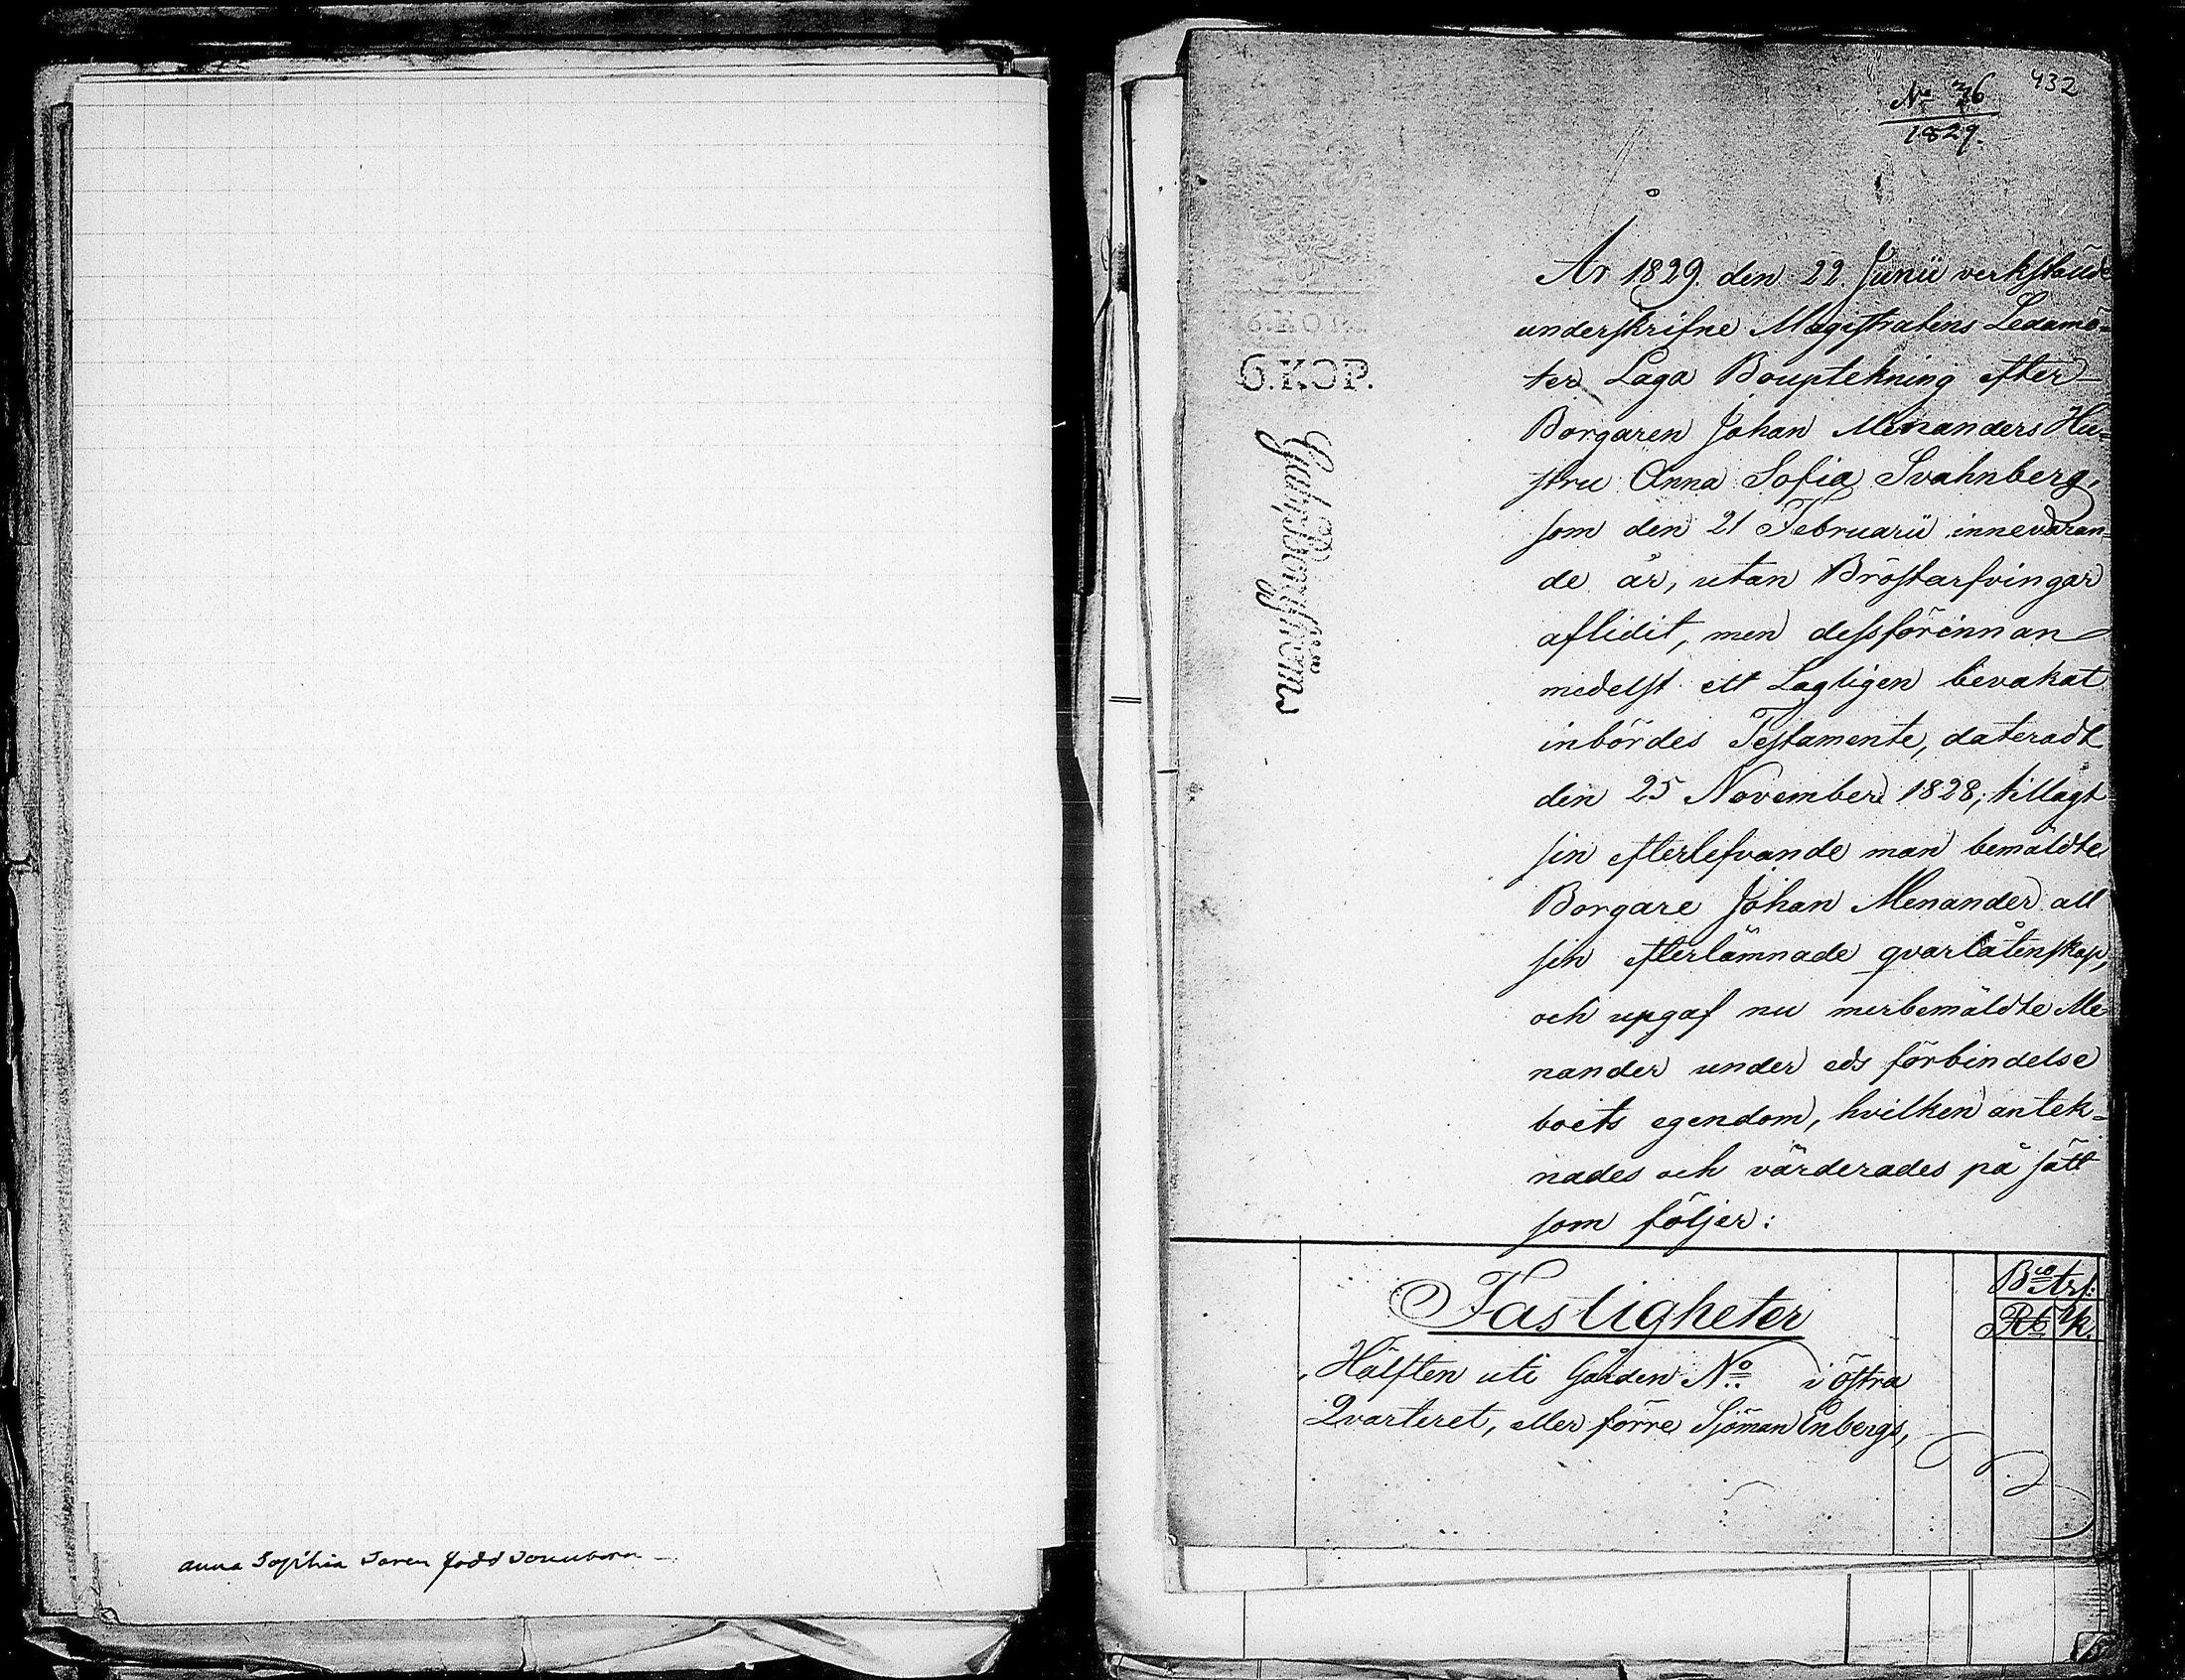 anna Sophia Saren född
432
No 36
1829.
År 1829. den 22. Junii verkstälde
underskrifne Magistratens Ledamö-
ter Laga Bouptekning efter
Borgaren Johan Menanders Hu-
stru Anna Sofia Svahnberg,
som den 21 Februarii innevaran-
de år, utan Bröstarfvingar
aflidit, men dessförinnan
medelst ett Lagligen bevakat
inbördes Testamente, dateradt
den 25 November 1828, tillagt
sin efterlefvande man bemäldte
Borgare Johan Menander all
sin efterlämnade qvarlåtenskap,
och upgaf nu merbemäldte Me
nander under eds förbindelse
boets egendom, hvilken antek-
nades och värderades på sätt
som följer:
6.KOP.
6.KOP.
Fastigheter
Bco Ass:
Rb k.
Hälften uti Gården No i östra
Qvarteret, eller förre Sjöman Enbergs,